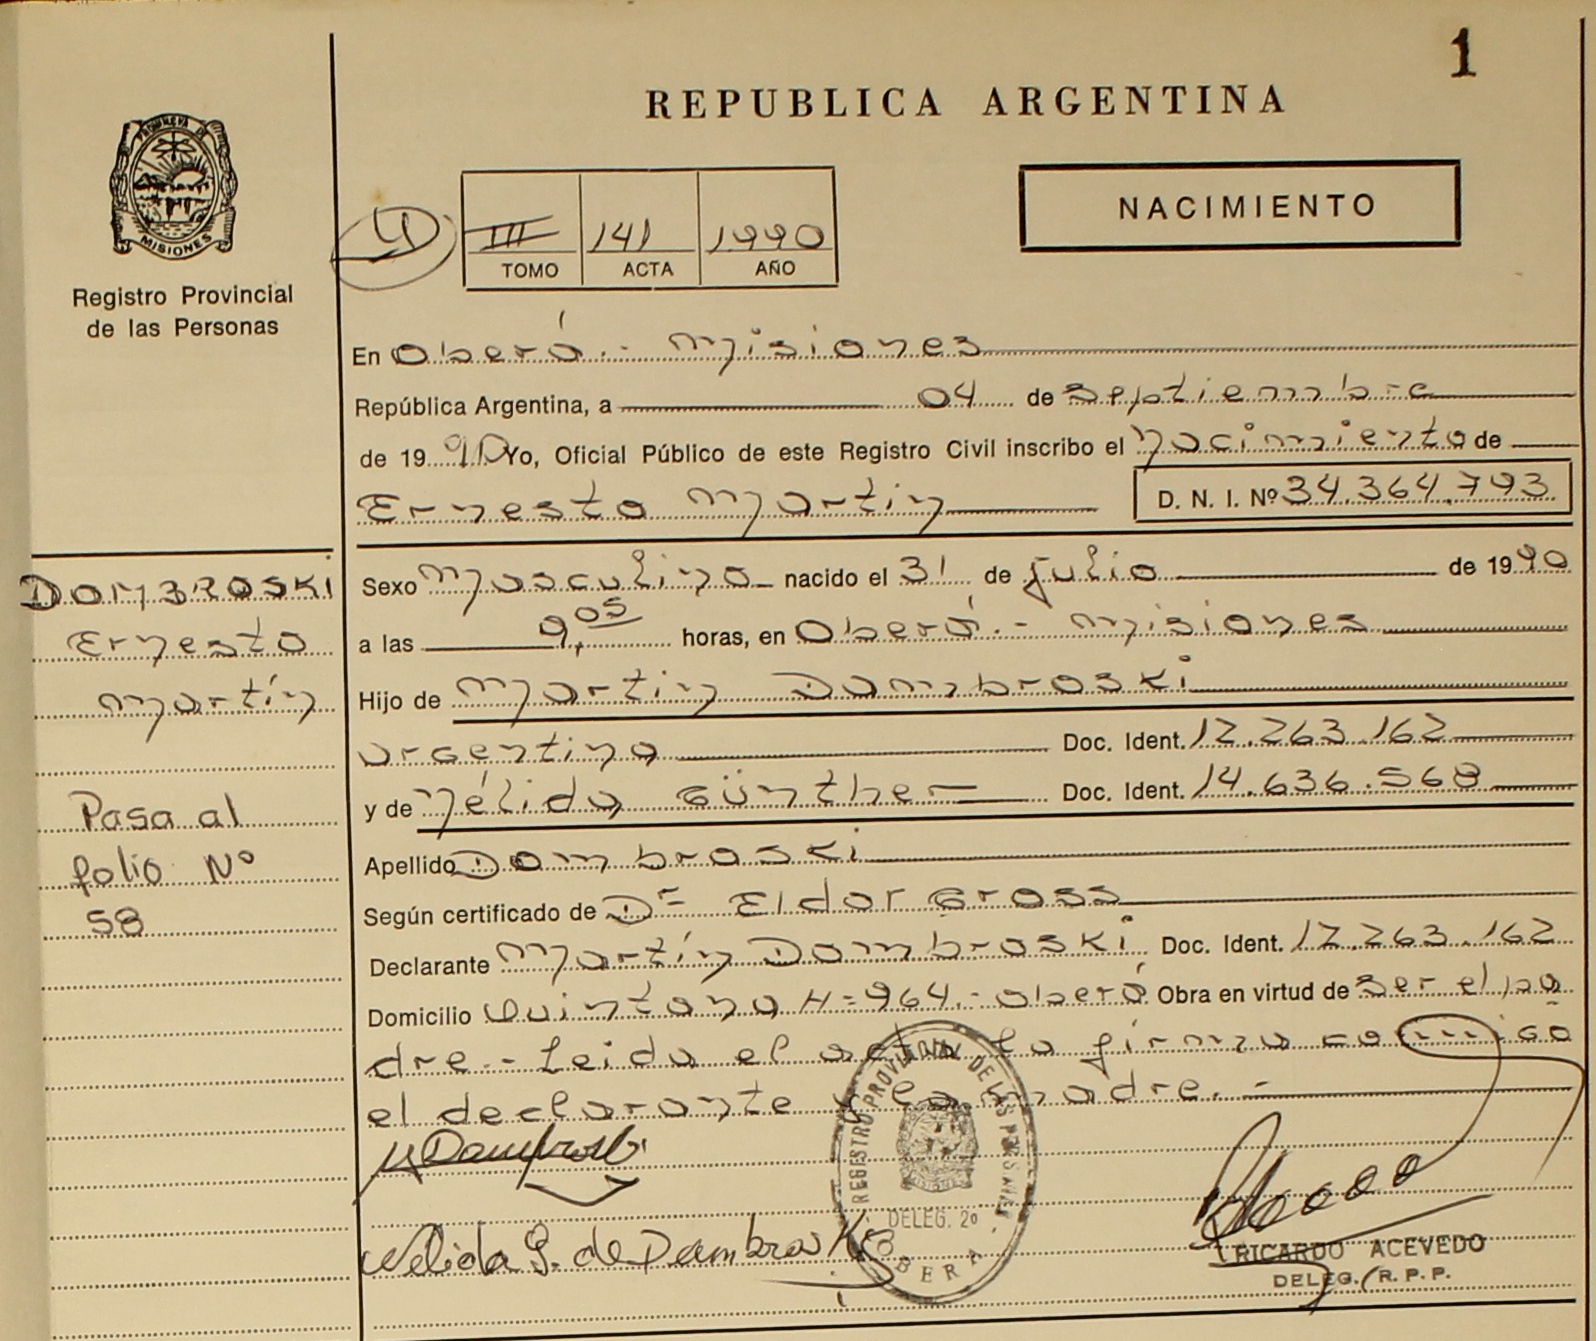 1
REPUBLICA ARGENTINA
PROVINCIA DE
MISIONES
Registro Provincial
de las Personas
III 141 1990
TOMO ACTA AÑO
NACIMIENTO
En Oberá.- Misiones
República Argentina, a 04 de Septiembre
de 1990 Yo, Oficial Público de este Registro Civil inscribo el nacimiento de
Ernesto Martín
D. N. I. Nº 34.364.793
DOMBROSKI
Ernesto
Martín
Pasa al
folio Nº
58
Sexo Masculino nacido el 31 de Julio de 1990
a las 9,05 horas, en Oberá.- Misiones
Hijo de Martín Dombroski
argentino Doc. Ident. 12.263.162
y de Nélida Günther Doc. Ident. 14.636.568
Apellido Dombroski
Según certificado de Dr Eldor Gross
Declarante Martín Dombroski Doc. Ident. 12.263.162
Domicilio Quintana N=964.- Oberá Obra en virtud de ser el pa
dre.- Leida el acta la firma conmigo
el declarante y la madre.-
REGISTRO PROVINCIAL DE LAS PERSONAS
MISIONES
DELEG. 2º
OBERA
Nelida G. de Dambroski
RICARDO ACEVEDO
DELEG. R. P. P.